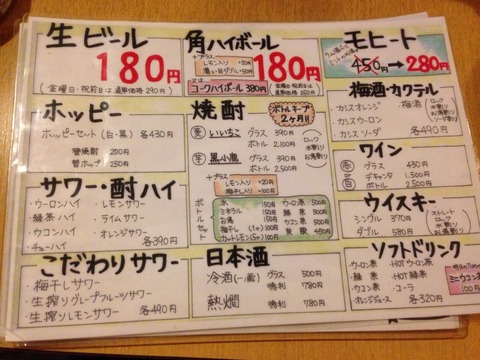 生ビール
180円
(金曜日・祝前日は通常価格 290円)
角ハイボール
+プラス
レモン入り +20円
濃い目ダブル
180円
又は
コークハイボール 380円
(金曜日・祝前日は通常価格
モヒート
ラム酒と
ミントのお酒
450→280円
ホッピー
ホッピーセット(白・黒) 各430円
替焼酎 200円
替ホップ 250円
焼酎
ボトルキープ
2ヶ月!!
麦 いいちこ グラス 390円
ボトル 2,100円
芋 黒小鹿 グラス 390円
ボトル 2,500円
ロック
水割り
お湯割り
+プラス
レモン入り +20円
梅干し入り
ボトルセット
氷
ミネラル
お湯
梅干し(1ヶ)
カットレモン(1ヶ)
ウーロン茶 500円
緑茶 500円
ウコン茶 500円
炭酸
梅酒・カクテル
・カシスオレンジ
・カシスウーロン
・カシスソーダ
・梅酒
ロック
水割り
お湯割り
ソーダ割り
各490円
ワイン
赤 白
グラス 430円
デキャンタ 1,500円
ボトル 2,500円
サワー・酎ハイ
・ウーロンハイ ・レモンサワー
・緑茶ハイ ・ライムサワー
・ウコンハイ ・オレンジサワー
・チューハイ
各390円
ウイスキー
シングル 370円
ダブル 580円
ストレート
ロック
水割り
お湯割り
こだわりサワー
・梅干しサワー
・生搾りグレープフルーツサワー
・生搾りレモンサワー 各490円
日本酒
冷酒(一合) グラス 500円
徳利 780円
熱燗 徳利 780円
ソフトドリンク
・ウーロン茶 ・HOT ウーロン茶
・緑茶 ・HOT 緑茶
・ウコン茶 ・コーラ
・オレンジジュース 各320円
ミニウコン茶
100円